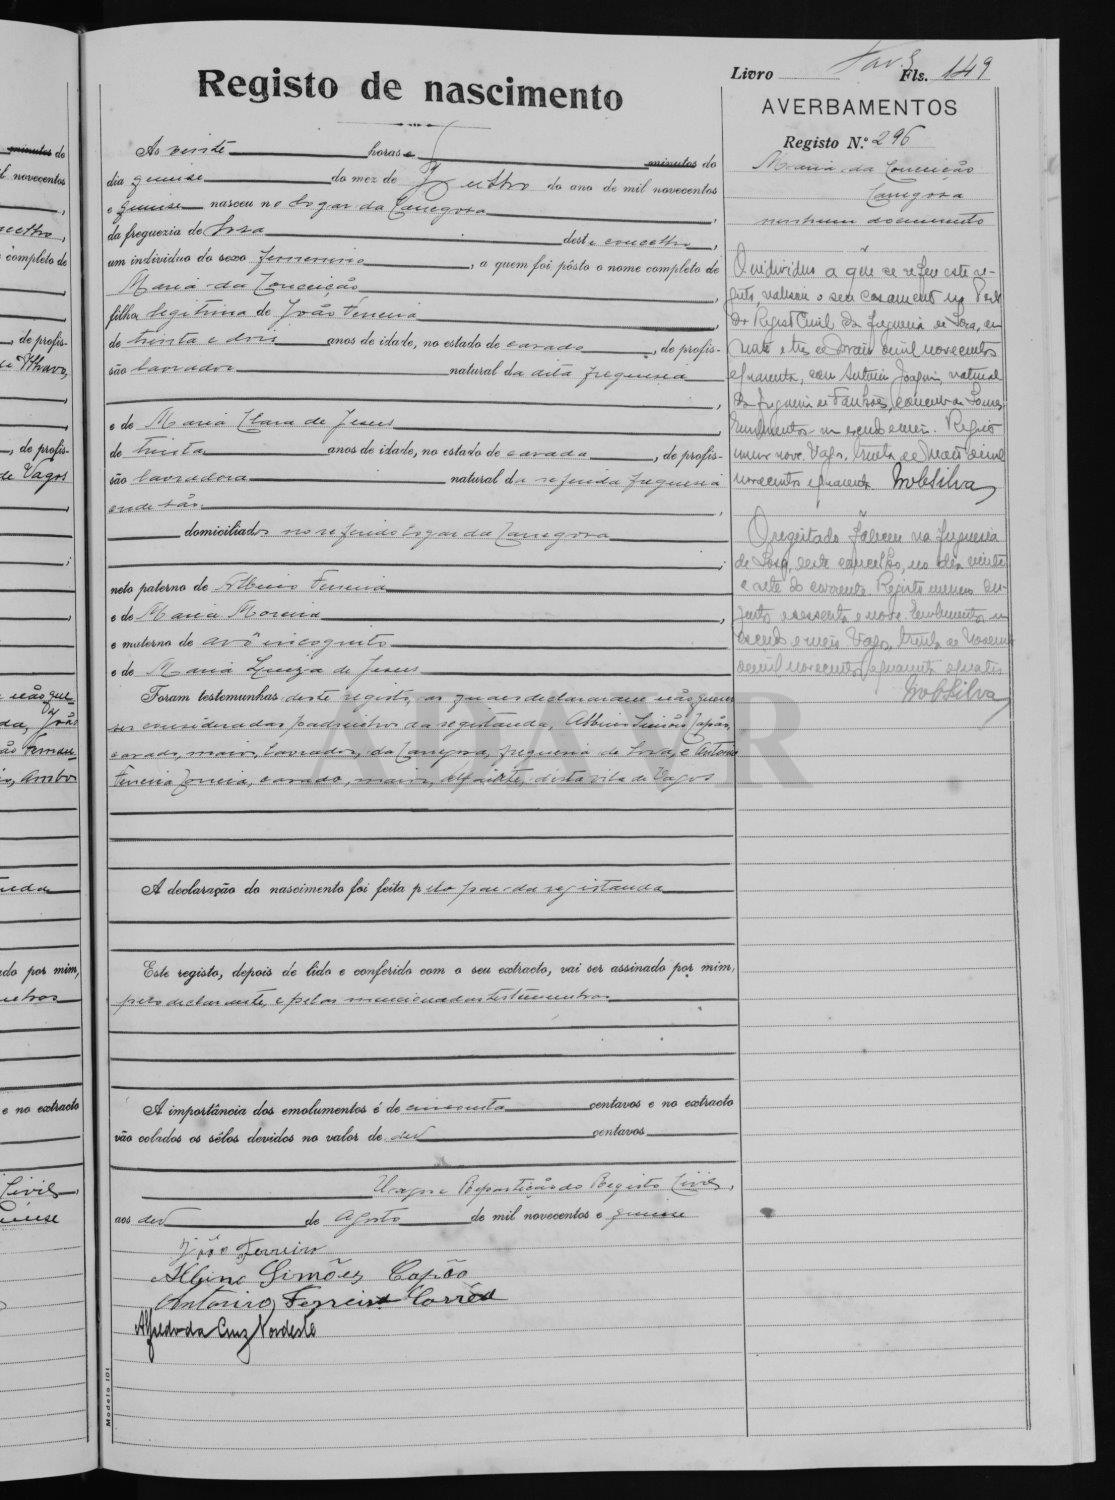 minutos do
il novecentos
completo de
, de profis-
, de profis-
de Vagos
João
ado por mim,
e no extracto
Civil
Registo de nascimento
Às vinte horas e minutos do
dia quinse do mez de Julho do ano de mil novecentos
e quinse nasceu no logar da Carregosa,
da freguezia de Sosa deste concelho,
um individuo do sexo femenino, a quem foi pôsto o nome completo de
Maria da Conceição,
filha legitima de João Ferreira,
de trinta e dois anos de idade, no estado de casado, de profis-
são lavrador natural da dita freguesia,
e de Maria Clara de Jesus,
de trinta anos de idade, no estado de casada, de profis-
são lavradora natural da referida freguesia
onde são,
domiciliados no referido logar da Carregosa;
neto paterno de Albino Ferreira
e de Maria Moreira,
e materno de avô incognito
e de Maria Luiza de Jesus
Foram testemunhas deste registo, as quaes declararam que não querem
ser consideradas padrinhos da registanda, Albino Simões Capão,
casado, maior, lavrador, da Carregosa, freguesia de Sosa, e Antonio
Ferreira Correia, casado, maior, alfaiate, desta vila de Vagos
A declaração do nascimento foi feita pelo pae da registanda
Este registo, depois de lido e conferido com o seu extracto, vai ser assinado por mim,
pelo declarante, e pelas mencionadas testemunhas
A importância dos emolumentos é de cincoenta centavos e no extracto
vão colados os sêlos devidos no valor de dez centavos
Vagos e Repartição do Registo Civil,
aos dez de Agosto de mil novecentos e quinse
João Ferreira
Albino Simões Capão
Antonio Ferreira Corrêa
Alfredo da Cruz Nordeste
Modelo 101
Livro Fls. 149
AVERBAMENTOS
Registo N.º 296
Maria da Conceição
Carregosa
nenhum documento
O individuo a que se refere este re-
gisto, realisou o seu casamento no Posto
do Registo Civil da freguesia de Sosa, em
vinte e tres de Maio de mil novecentos
e quarenta, com Antonio Joaquim, natural
da freguesia de Fanhões, concelho de Loures.
Emolumentos um escudo e meio. Registo
numero nove. Vagos, trinta de Maio de mil
novecentos e quarenta.
O registado faleceu na freguesia
de Sosa, deste concelho, no dia vinte
e sete do corrente. Registo numero du-
zentos e sessenta e nove. Emolumentos um
escudo e meio. Vagos, trinta de Novembro
de mil novecentos e quarenta e quatro.
ADAVR